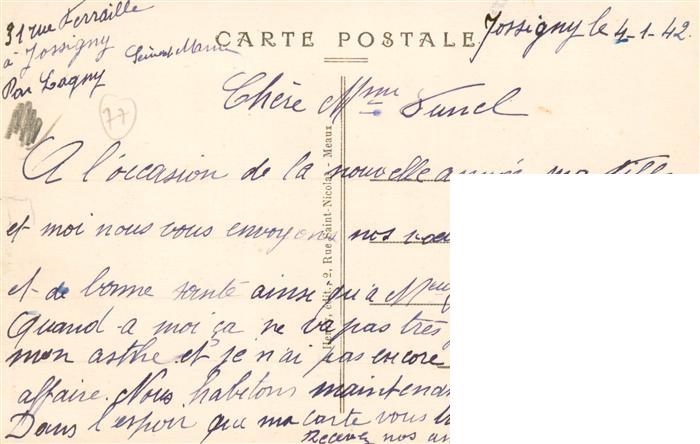 31 rue Ferraille
à Jossigny
Par Lagny
Seine et Marne
77
CARTE POSTALE
Jossigny le 4-1-42.
Chère Mme
A l'occasion de la nouvelle année ma fille
et moi nous vous envoyons nos
et de bonne santé ainsi qu'à
Quand a moi ça ne va pas très
mon asthe et je n'ai pas encore
affaire. Nous habitons
Dans l'espoir que ma carte vous
Recevez nos
édit., 2, Rue Saint-Nicolas - Meaux